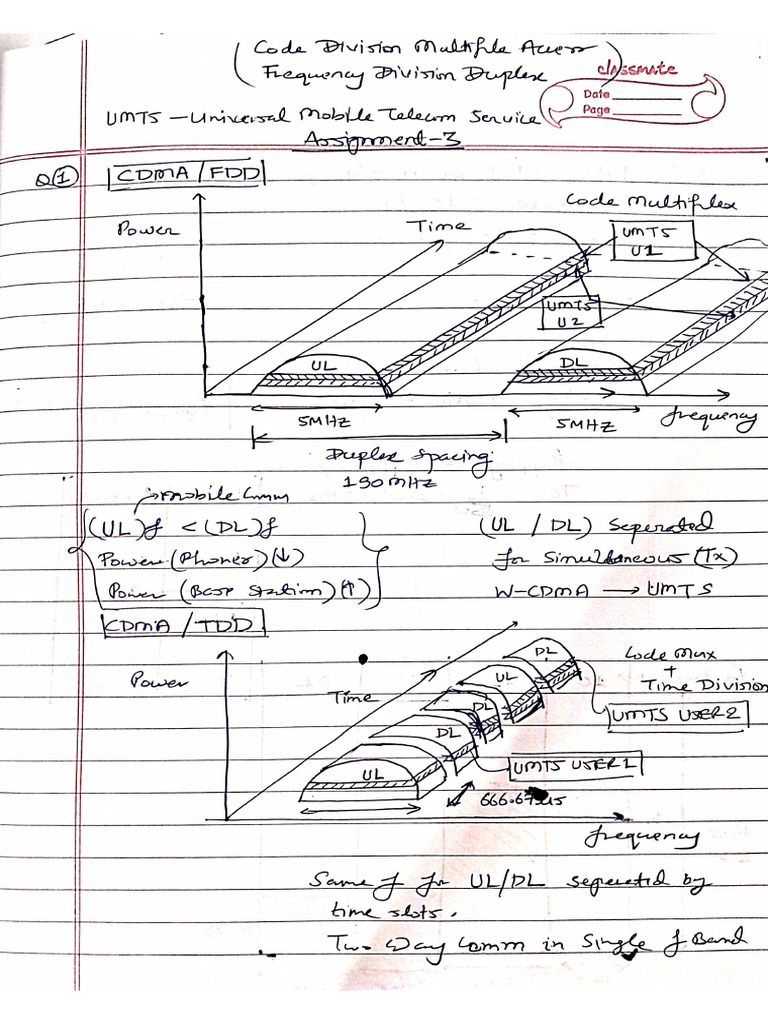 (Code Division Multiple Access
Frequency Division Duplex)
classmate
Date
Page
UMTS - Universal Mobile Telecom Service
Assignment-3
Q1 CDMA / FDD
Code Multiplex
Power
Time
UMTS
U1
UMTS
U2
UL
DL
5MHz
5MHz
frequency
Duplex Spacing
190MHz
→Mobile Comm
(UL)f < (DL)f
Power (Phones) (↓)
Power (Base Station) (↑)
(UL / DL) Seperated
for Simultaneous (Tx)
W-CDMA → UMTS
CDMA / TDD
Power
Time
DL
UL
DL
DL
UL
Code Mux
+
Time Division
UMTS USER2
UMTS USER1
666.67μs
frequency
Same f for UL/DL seperated by
time slots.
Two Way Comm in Single f Band